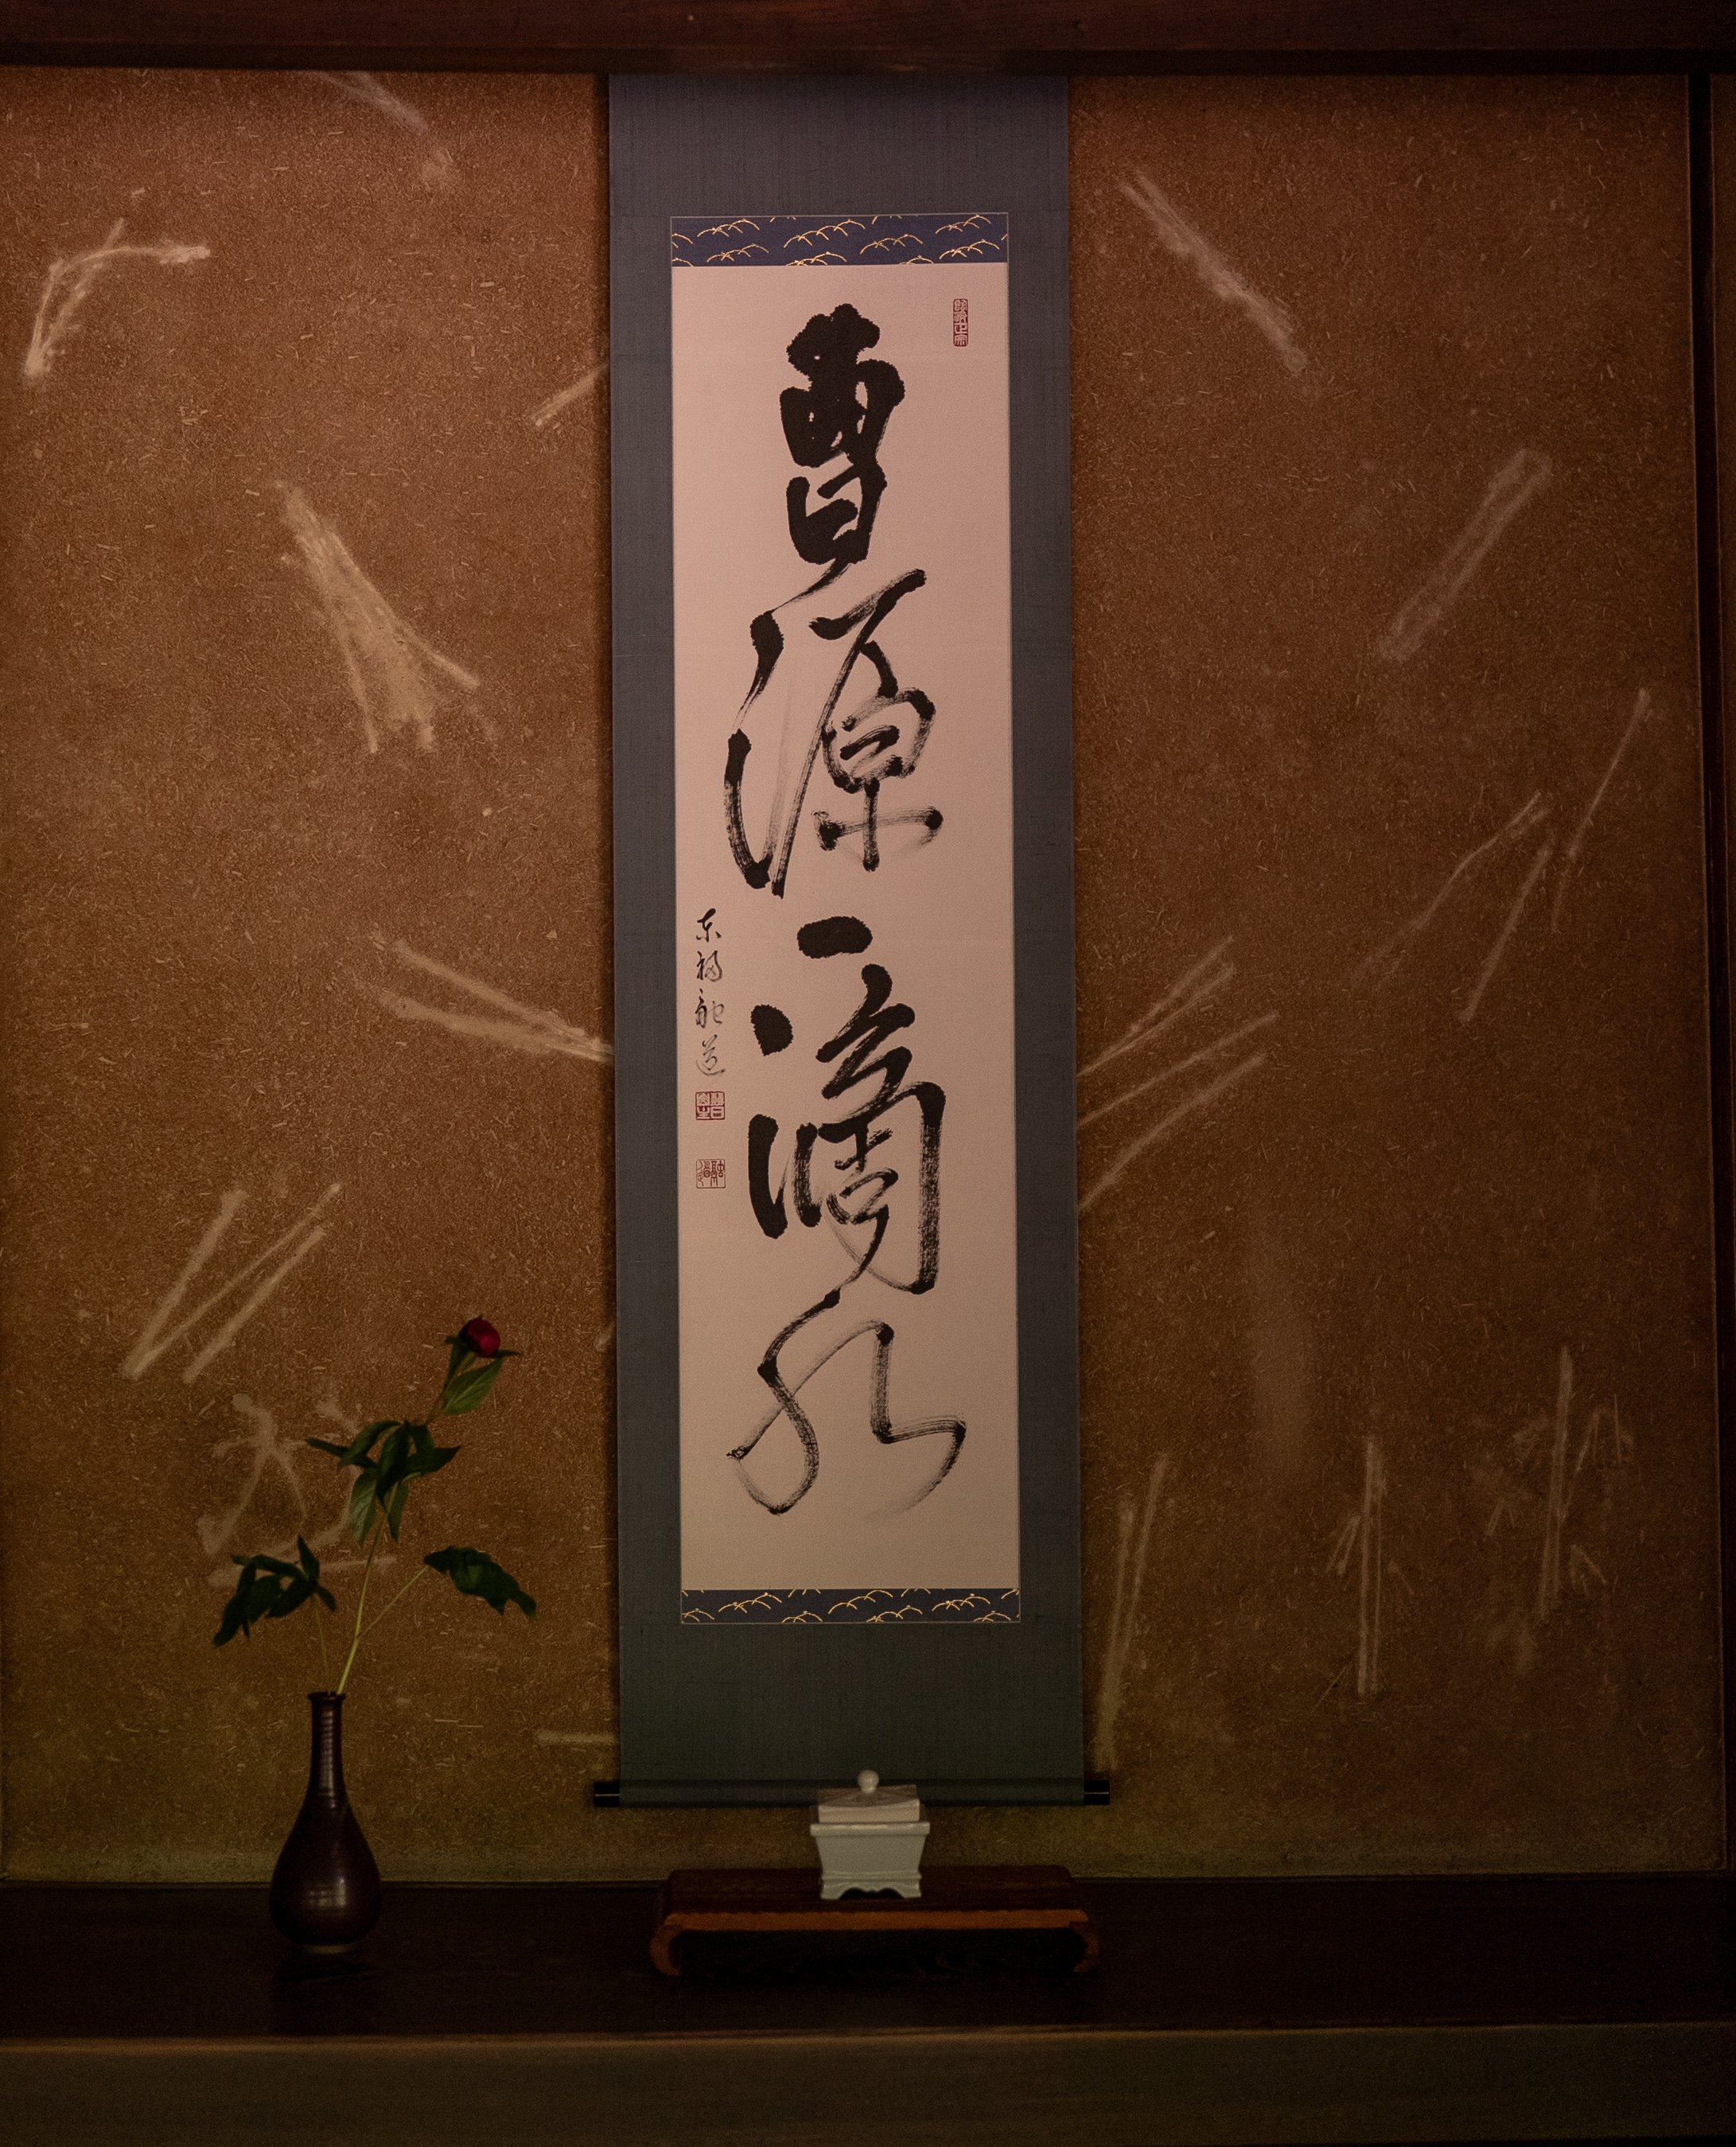 曹源一滴水
東福融道